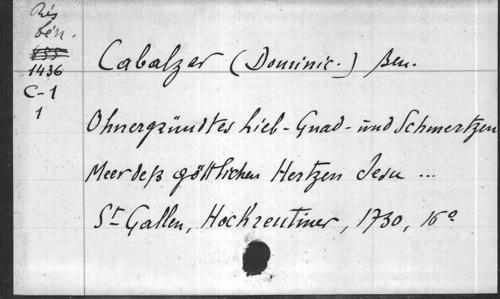 Rés
bén.
1436
C-1
1
Cabalzer (Dominic.) Ben.
Ohnergründtes Lieb-Gnad- und Schmertzen
Meer deß göttlichen Hertzen Jesu ...
St-Gallen, Hochreutiner, 1730, 16º